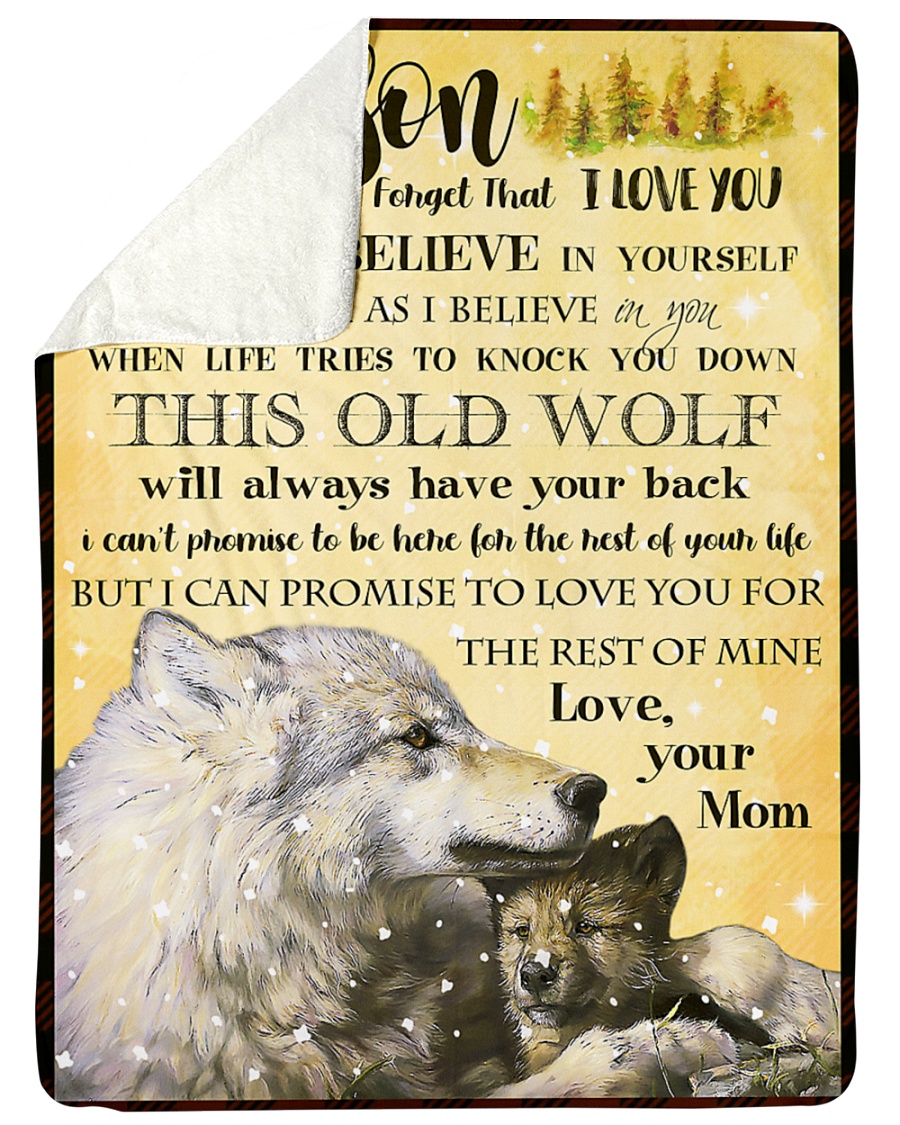 Son
Forget That I LOVE YOU
BELIEVE IN YOURSELF
AS I BELIEVE in you
WHEN LIFE TRIES TO KNOCK YOU DOWN
THIS OLD WOLF
will always have your back
i can't promise to be here for the rest of your life
BUT I CAN PROMISE TO LOVE YOU FOR
THE REST OF MINE
Love,
your
Mom